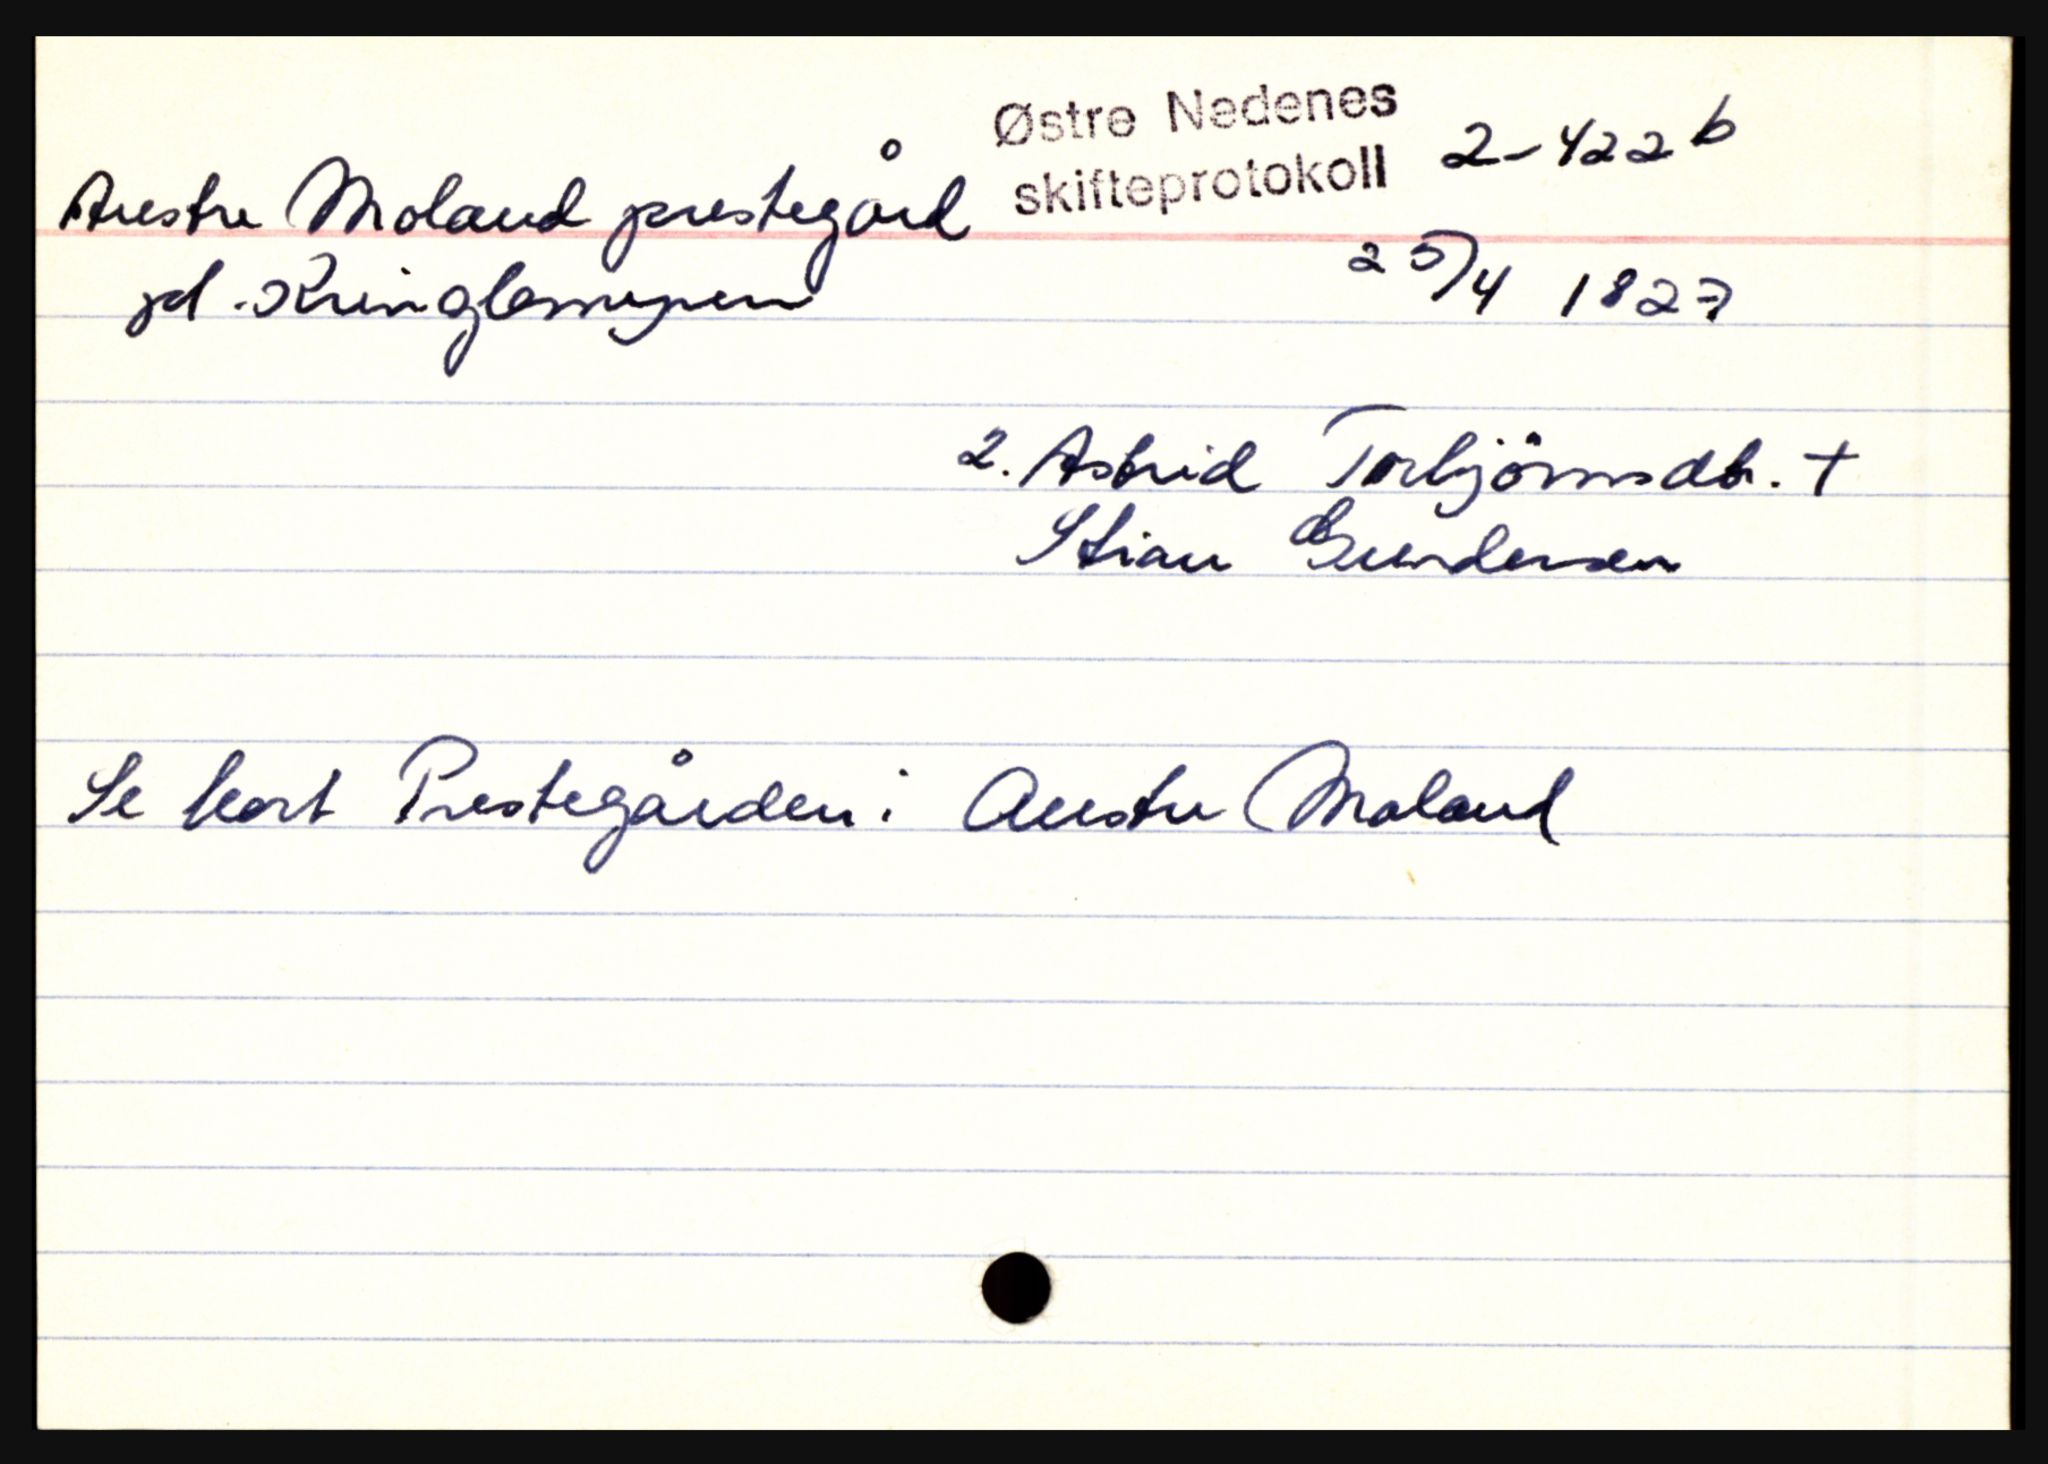 Austre Moland prestegård
Østre Nedenes
skifteprotokoll
2-422b
pl. Kringlemyren
25/4 1827
2. Astrid Torbjörnsdtr. +
Stian Gundersen
Se kort Prestegården i Austre Moland